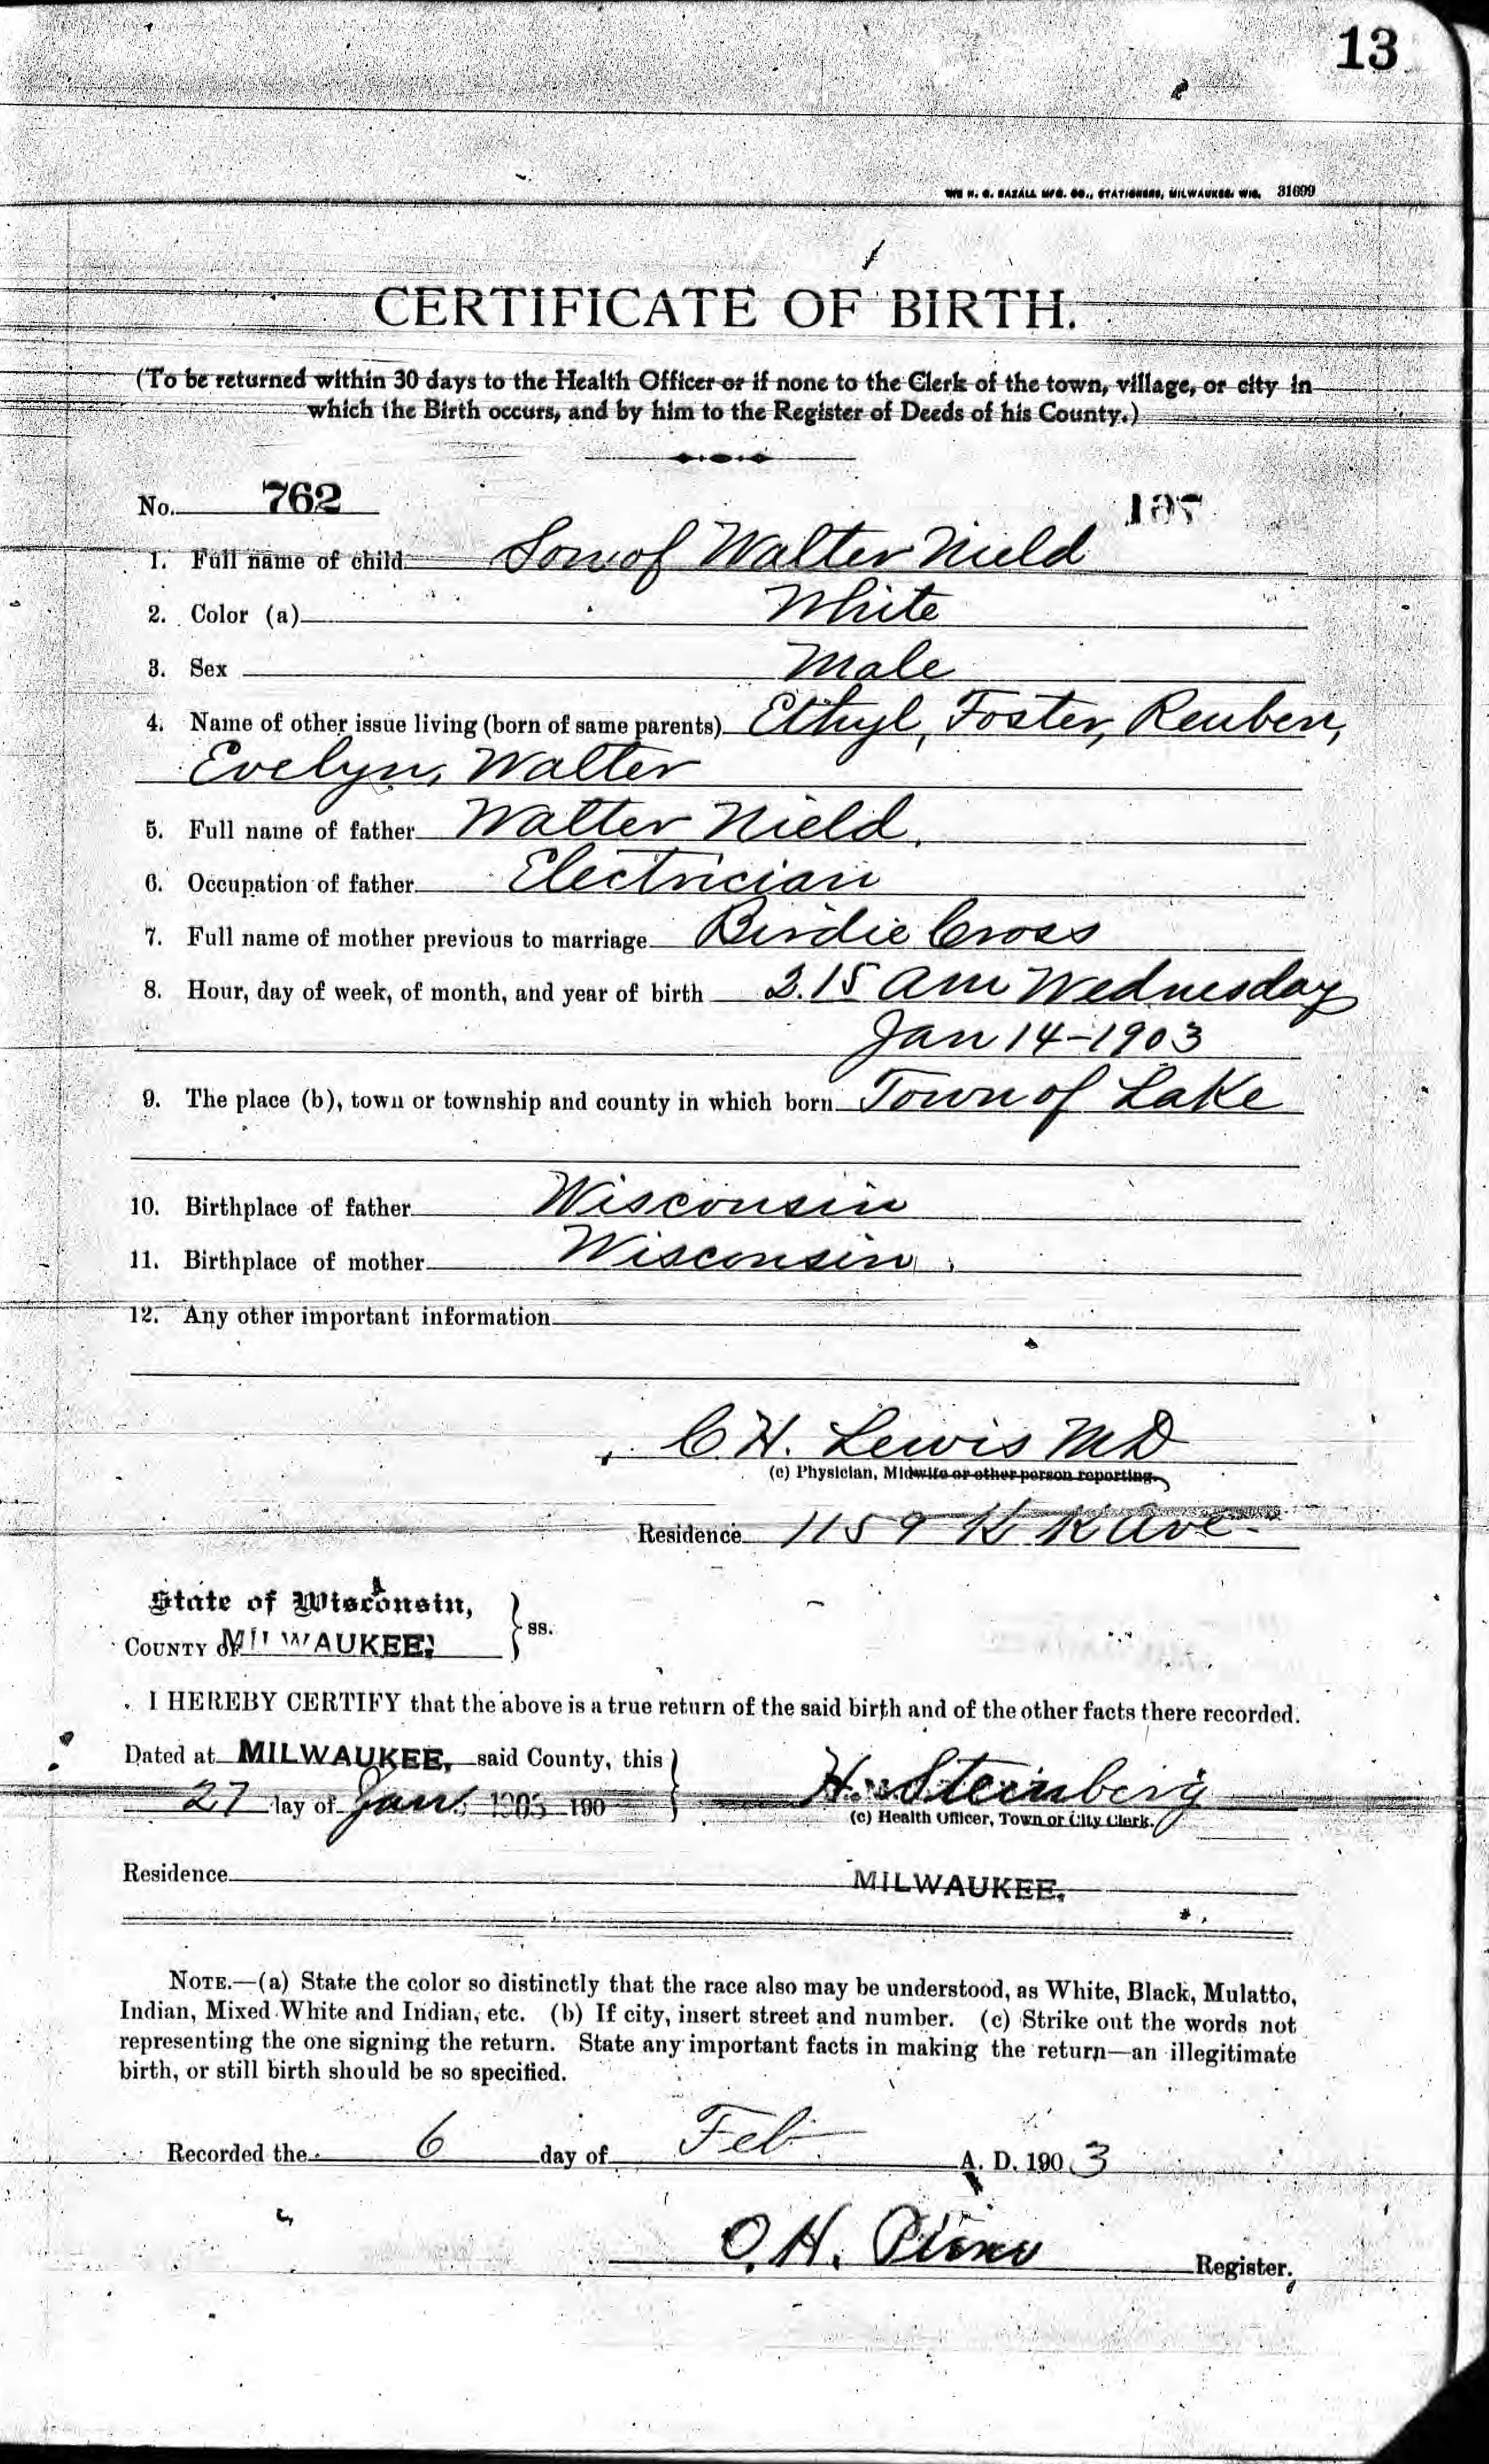 13
THE H. G. RAZALL MFG. CO., STATIONERS, MILWAUKEE, WIS. 31699
CERTIFICATE OF BIRTH.
(To be returned within 30 days to the Health Officer or if none to the Clerk of the town, village, or city in
which the Birth occurs, and by him to the Register of Deeds of his County.)
No. 762 197
1. Full name of child Son of Walter Nield
2. Color (a) White
3. Sex Male
4. Name of other issue living (born of same parents) Ethyl, Foster, Reuben,
Evelyn, Walter
5. Full name of father Walter Nield
6. Occupation of father Electrician
7. Full name of mother previous to marriage Birdie Cross
8. Hour, day of week, of month, and year of birth 2.15 am Wednesday
Jan 14-1903
9. The place (b), town or township and county in which born Town of Lake
10. Birthplace of father Wisconsin
11. Birthplace of mother Wisconsin
12. Any other important information
C H. Lewis MD
(c) Physician, Midwife or other person reporting.
Residence 1159 K K Ave
State of Wisconsin,
COUNTY OF MILWAUKEE, } ss.
I HEREBY CERTIFY that the above is a true return of the said birth and of the other facts there recorded.
Dated at MILWAUKEE, said County, this
27 day of Jan. 1903 190 } H. Steinberg
(c) Health Officer, Town or City Clerk.
Residence MILWAUKEE.
NOTE.—(a) State the color so distinctly that the race also may be understood, as White, Black, Mulatto,
Indian, Mixed White and Indian, etc. (b) If city, insert street and number. (c) Strike out the words not
representing the one signing the return. State any important facts in making the return—an illegitimate
birth, or still birth should be so specified.
Recorded the 6 day of Feb A. D. 1903
O. H. Register.